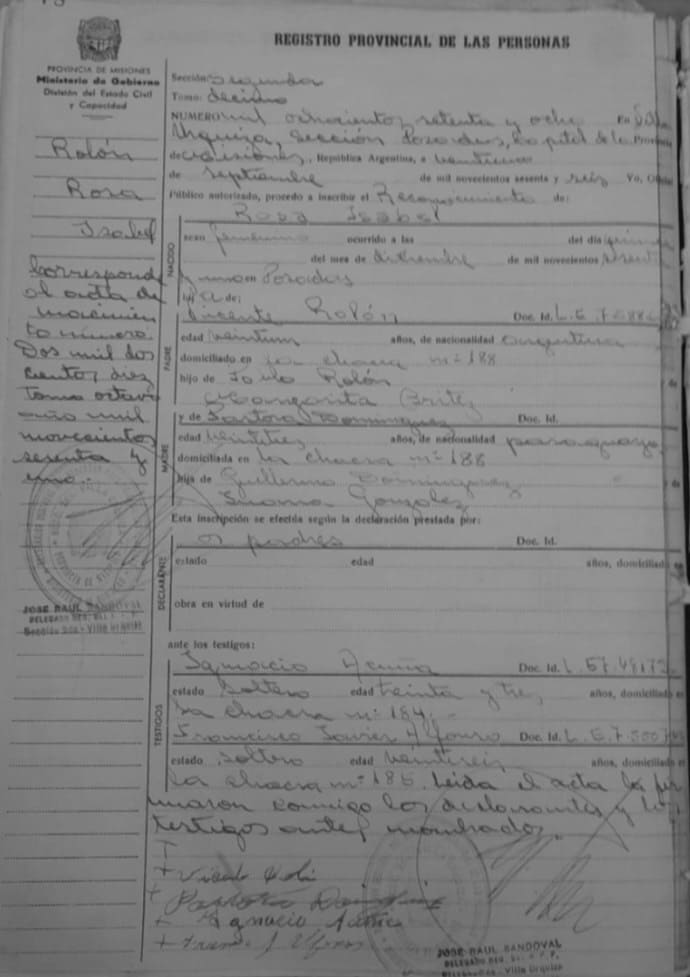 REGISTRO PROVINCIAL DE LAS PERSONAS
PROVINCIA DE MISIONES
Ministerio de Gobierno
División del Estado Civil
y Capacidad
Rolón
Rosa
Isabel
Corresponde
al acta de
nacimien
to número
Dos mil dos
cientos diez
tomo octavo
año mil
novecientos
sesenta y
uno.-
JOSE RAUL SANDOVAL
Sección 2da - Villa Urquiza
Sección: Segunda
Tomo: decimo
NUMERO mil ochocientos setenta y ocho En Villa
Urquiza, sección Posadas, Capital de la Provincia
de Misiones, República Argentina, a veintiuno
de septiembre de mil novecientos sesenta y seis Yo, Oficial
Público autorizado, procedo a inscribir el Reconocimiento de:
Rosa Isabel
NACIDO
sexo femenino ocurrido a las del día
del mes de diciembre de mil novecientos sesenta
y uno en Posadas
hija de:
PADRE
Vicente Rolón Doc. Id. L. E. 7.
edad veintiun años, de nacionalidad argentina
domiciliado en la chacra nº 188
hijo de Rolón
Margarita Britez
MADRE
y de Pastora Dominguez Doc. Id.
edad veintitres años, de nacionalidad paraguaya
domiciliada en la chacra nº 188
hija de Guillermo Dominguez
Gonzalez
Esta inscripción se efectúa según la declaración prestada por:
DECLARANTE
os padres Doc. Id.
estado edad años, domiciliado en
obra en virtud de
ante los testigos:
TESTIGOS
Ignacio Acuña Doc. Id. L.
estado soltero edad treinta y tres años, domiciliado en
la chacra nº 184.-
Francisco Javier Alfonso Doc. Id. L. E. 7.
estado soltero edad veintiseis años, domiciliado en
la chacra nº 186. Leida el acta la fir
maron conmigo los declarantes y los
testigos antes nombrados.
Ignacio Acuña
JOSE RAUL SANDOVAL
Sección 2da - Villa Urquiza